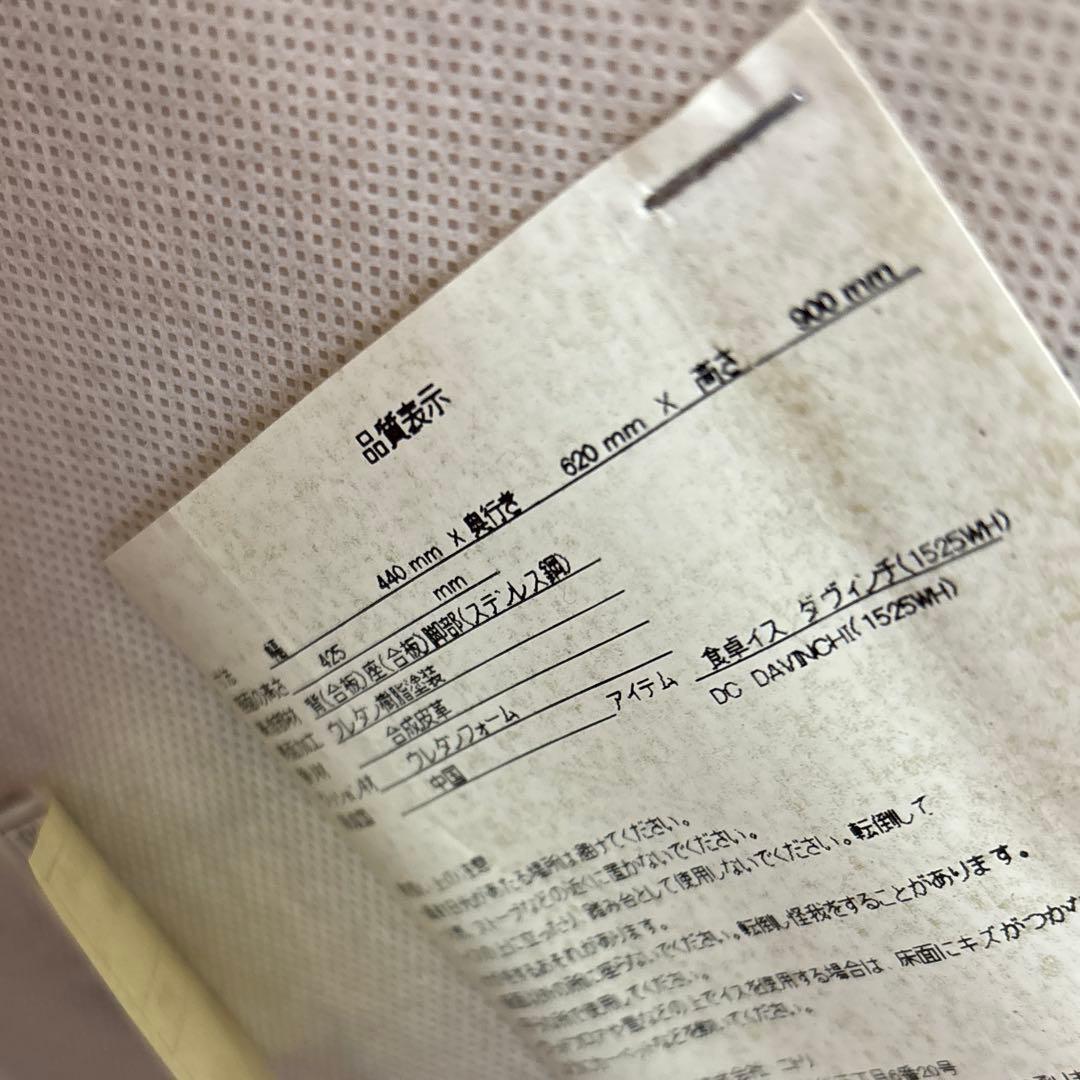 品質表示
幅 440 mm X 奥行き 620 mm X 高さ 900 mm
425 mm
背(合板)座(合板)脚部(ステンレス鋼)
ウレタン樹脂塗装
合成皮革
ウレタンフォーム
中国
アイテム 食卓イス ダヴィンチ(1525WH)
DC DAVINCHI(1525WH)
場所は避けてください。
ストーブなどの近くに置かないでください。
踏み台として使用しないでください。転倒して
おそれがあります。
ないでください。転倒し怪我をすることがあります。
使用してください。
などの上でイスを使用する場合は、床面にキズがつか
を敷いてください。
ニトリ
6番20号